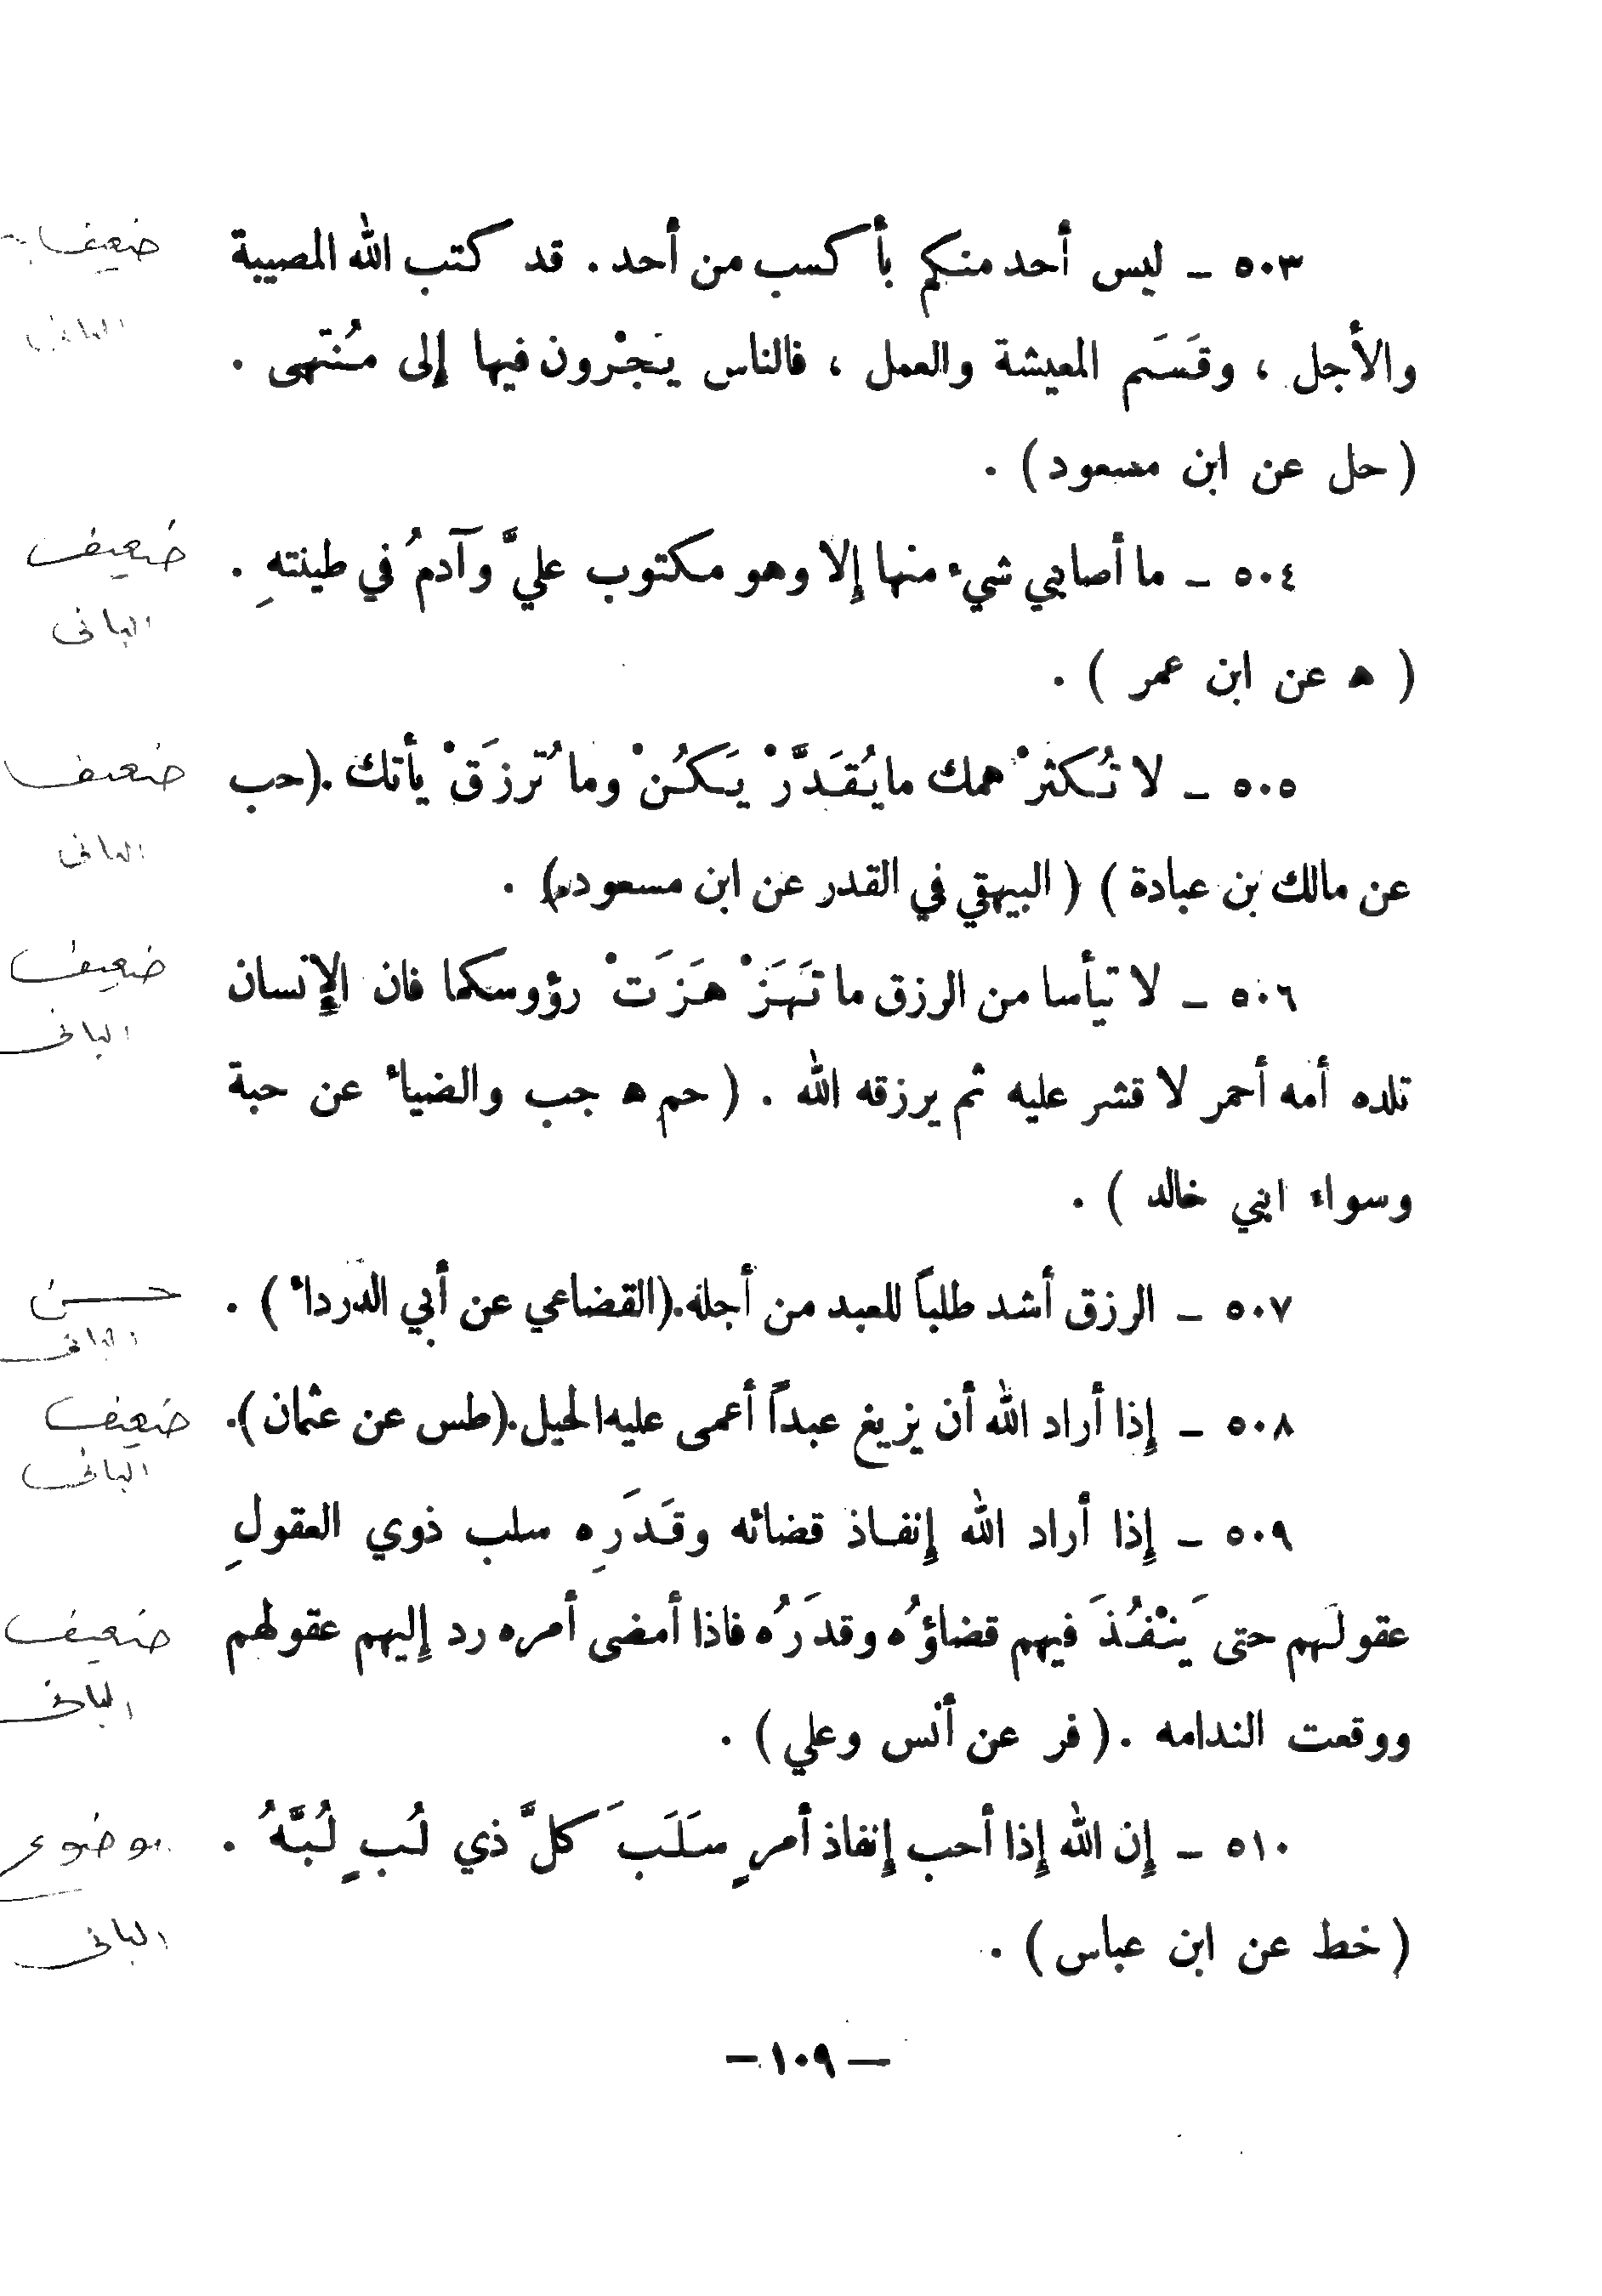 ٥٠٣ ـ ليس أحد منكم بأكسب من أحد . قد كتب الله المصيبة
ضعيف
والأجل ، وقَسَم المعيشة والعمل ، فالناس يَجْرون فيها إلى مُنتهى .
البانى
( حل عن ابن مسعود ) .
٥٠٤ ـ ما أصابني شيء منها إلا وهو مكتوب عليَّ وآدمُ في طينتهِ .
ضعيف
البانى
( ه عن ابن عمر ) .
٥٠٥ ـ لا تُكثرْ همك ما يُقَدَّرْ يَكُنْ وما تُرزَقْ يأتك .(حب
ضعيف
البانى
عن مالك بن عبادة ) ( البيهقي في القدر عن ابن مسعود ) .
٥٠٦ ـ لا تيأسا من الرزق ما تَهَزْهَزَتْ رؤوسكما فان الإنسان
ضعيف
البانى
تلده أمه أحمر لا قشر عليه ثم يرزقه الله . ( حم ه جب والضياء عن حبة
وسواء ابني خالد ) .
٥٠٧ ـ الرزق أشد طلباً للعبد من أجله.(القضاعي عن أبي الدرداء ) .
حسن
البانى
٥٠٨ ـ إذا أراد الله أن يزيغ عبداً أعمى عليه الحيل.(طس عن عثمان).
ضعيف
البانى
٥٠٩ ـ إذا أراد الله إنفاذ قضائه وقَدَرِه سلب ذوي العقولِ
عقولَهم حتى يَنْفُذَ فيهم قضاؤُه وقدَرُه فاذا أمضى أمره رد إليهم عقولهم
ضعيف
البانى
ووقعت الندامه .( فر عن أنس وعلي ) .
٥١٠ ـ إن الله إذا أحب إنفاذ أمرٍ سَلَبَ كلَّ ذي لُبٍ لُبَّهُ .
موضوع
( خط عن ابن عباس ) .
البانى
— ١٠٩ —